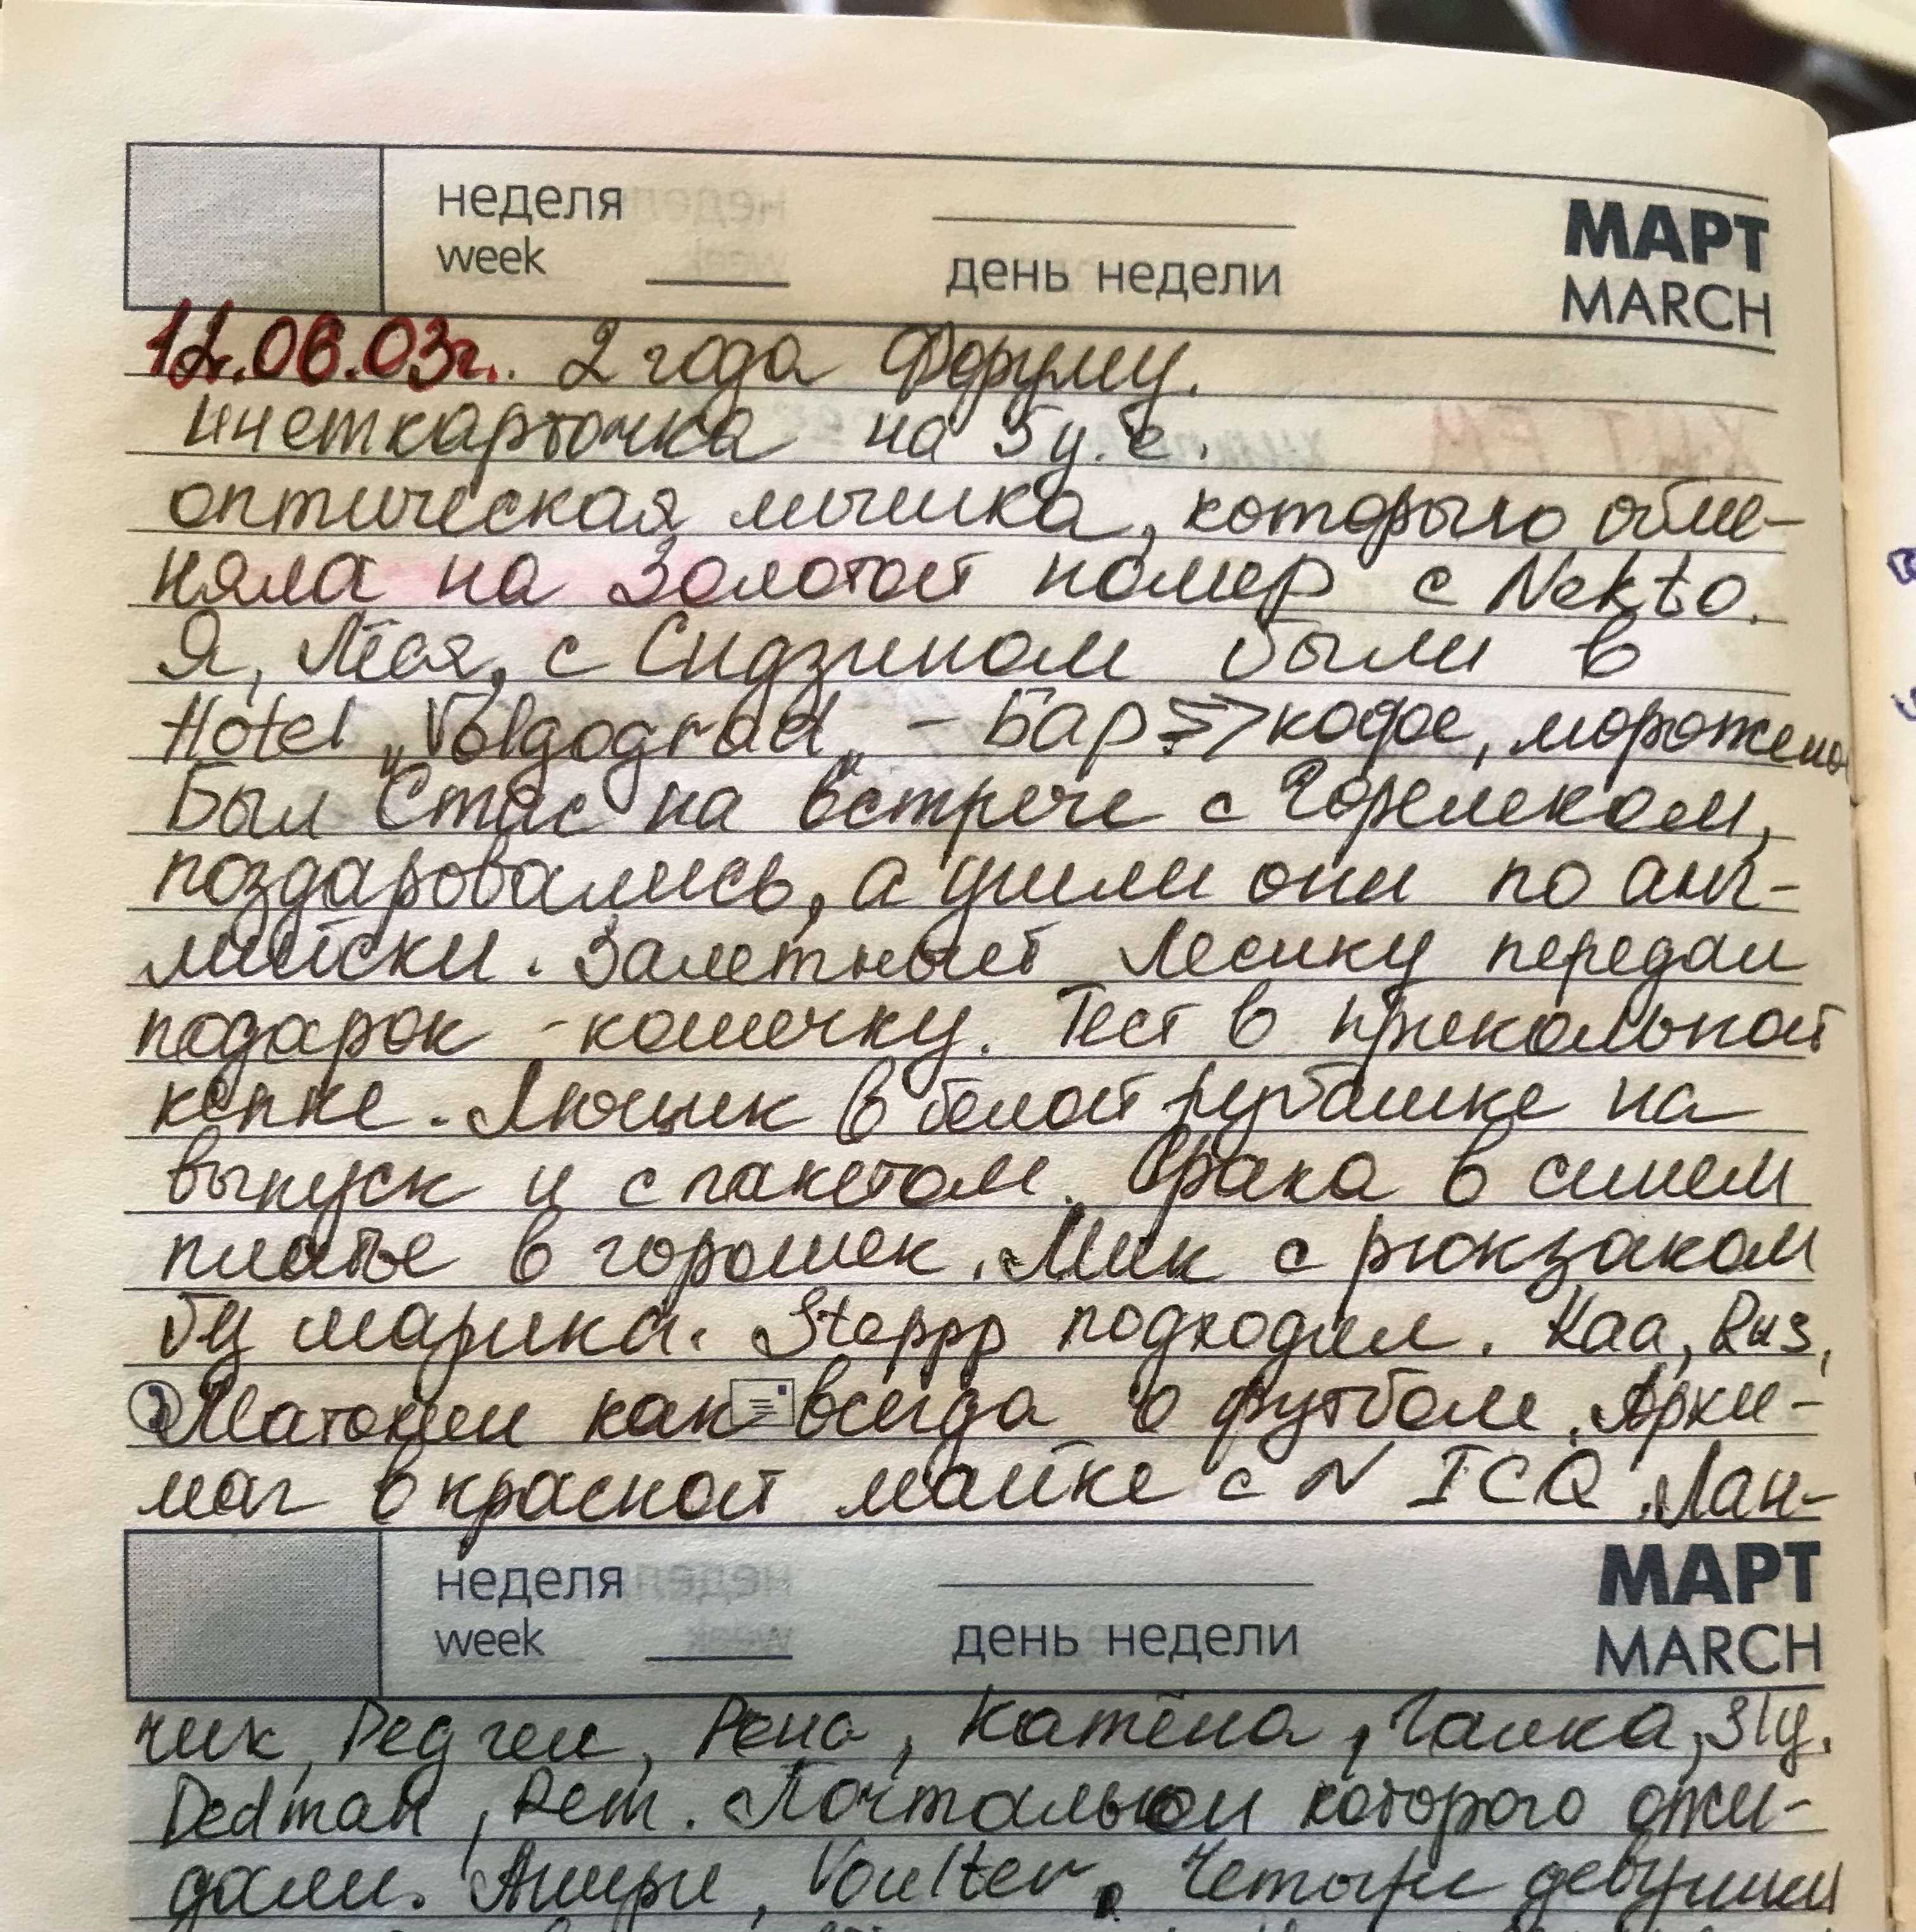 неделя
week
день недели
МАРТ
MARCH
12.06.03г. 2 года Форуму.
Инеткарточка на 5 у.е.
оптическая мышка, которыю обме-
няла на Золотой номер с Nekto.
Я, Лёся, с Сидзином были в
Hotel „Volgograd" - Бар => кофе, мороженое
Был Стас на встрече с Горемеком,
поздаровались, а ушли они по анг-
лийски. Залетный Лесику передал
подарок - кошечку. Тест в прикольной
кепке. Лющик в белой рубашке на
выпуск и с пакетом. Врака в синем
платье в горошек. Мик с рюкзаком
бу марика. Steppp подходил. Kaa, Rus,
Матокин как всегда о футболе. Архи-
маг в красной майке с N ICQ. Лан-
неделя
week
день недели
МАРТ
MARCH
чик, Ред гел, Рена, Катёна, Галка, Sly.
Dedman, Rem. Почтальон которого ожи-
дали. Ашери, Voulter. Четыре девушки